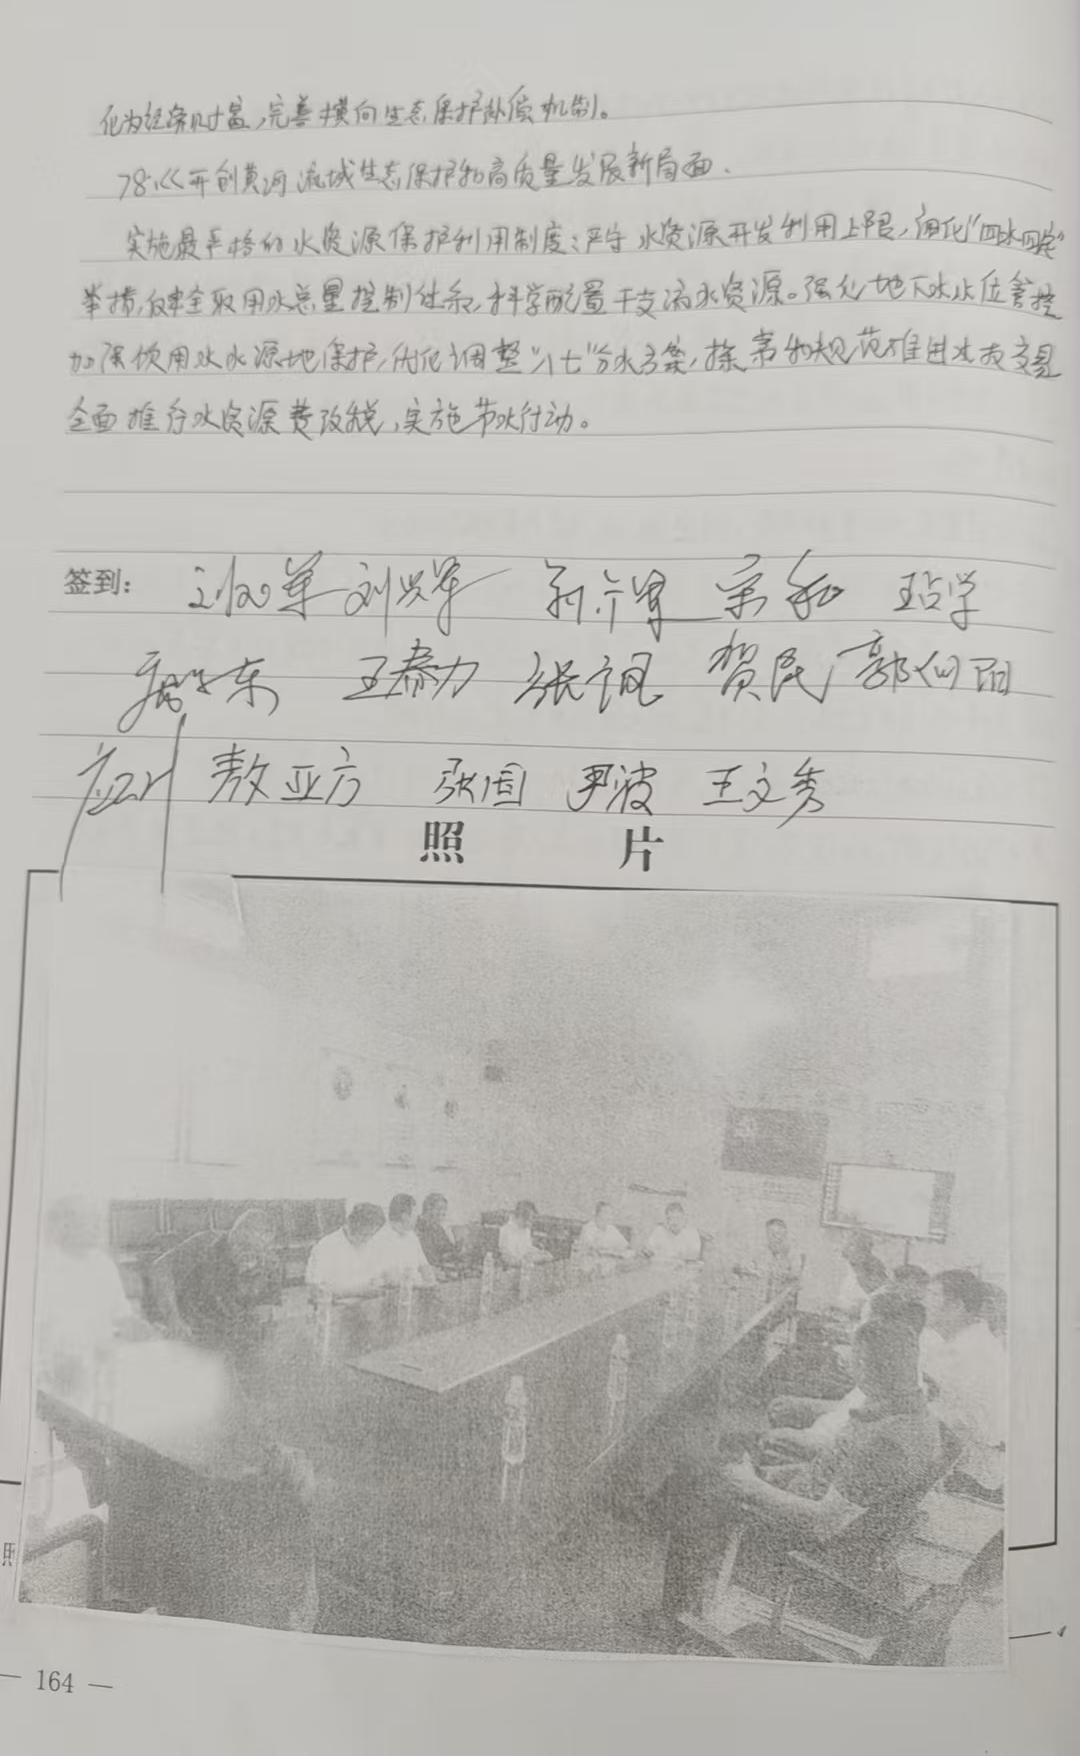 化为经济财富,完善横向生态保护补偿机制。
78.《开创黄河流域生态保护和高质量发展新局面.
实施最严格的水资源保护利用制度:严守水资源开发利用上限,细化"四水四定"
举措,健全取用水总量控制体系,科学配置干支流水资源。强化地下水水位管控
加强饮用水水源地保护,优化调整"八七"分水方案,探索和规范推进水权交易
全面推行水资源费改税,实施节水行动。
签到: 刘兴军 宗和 王占学
王泰力 张讽 贺民 郭向阳
敖亚方 张国 尹波 王文秀
照 片
照
— 164 —